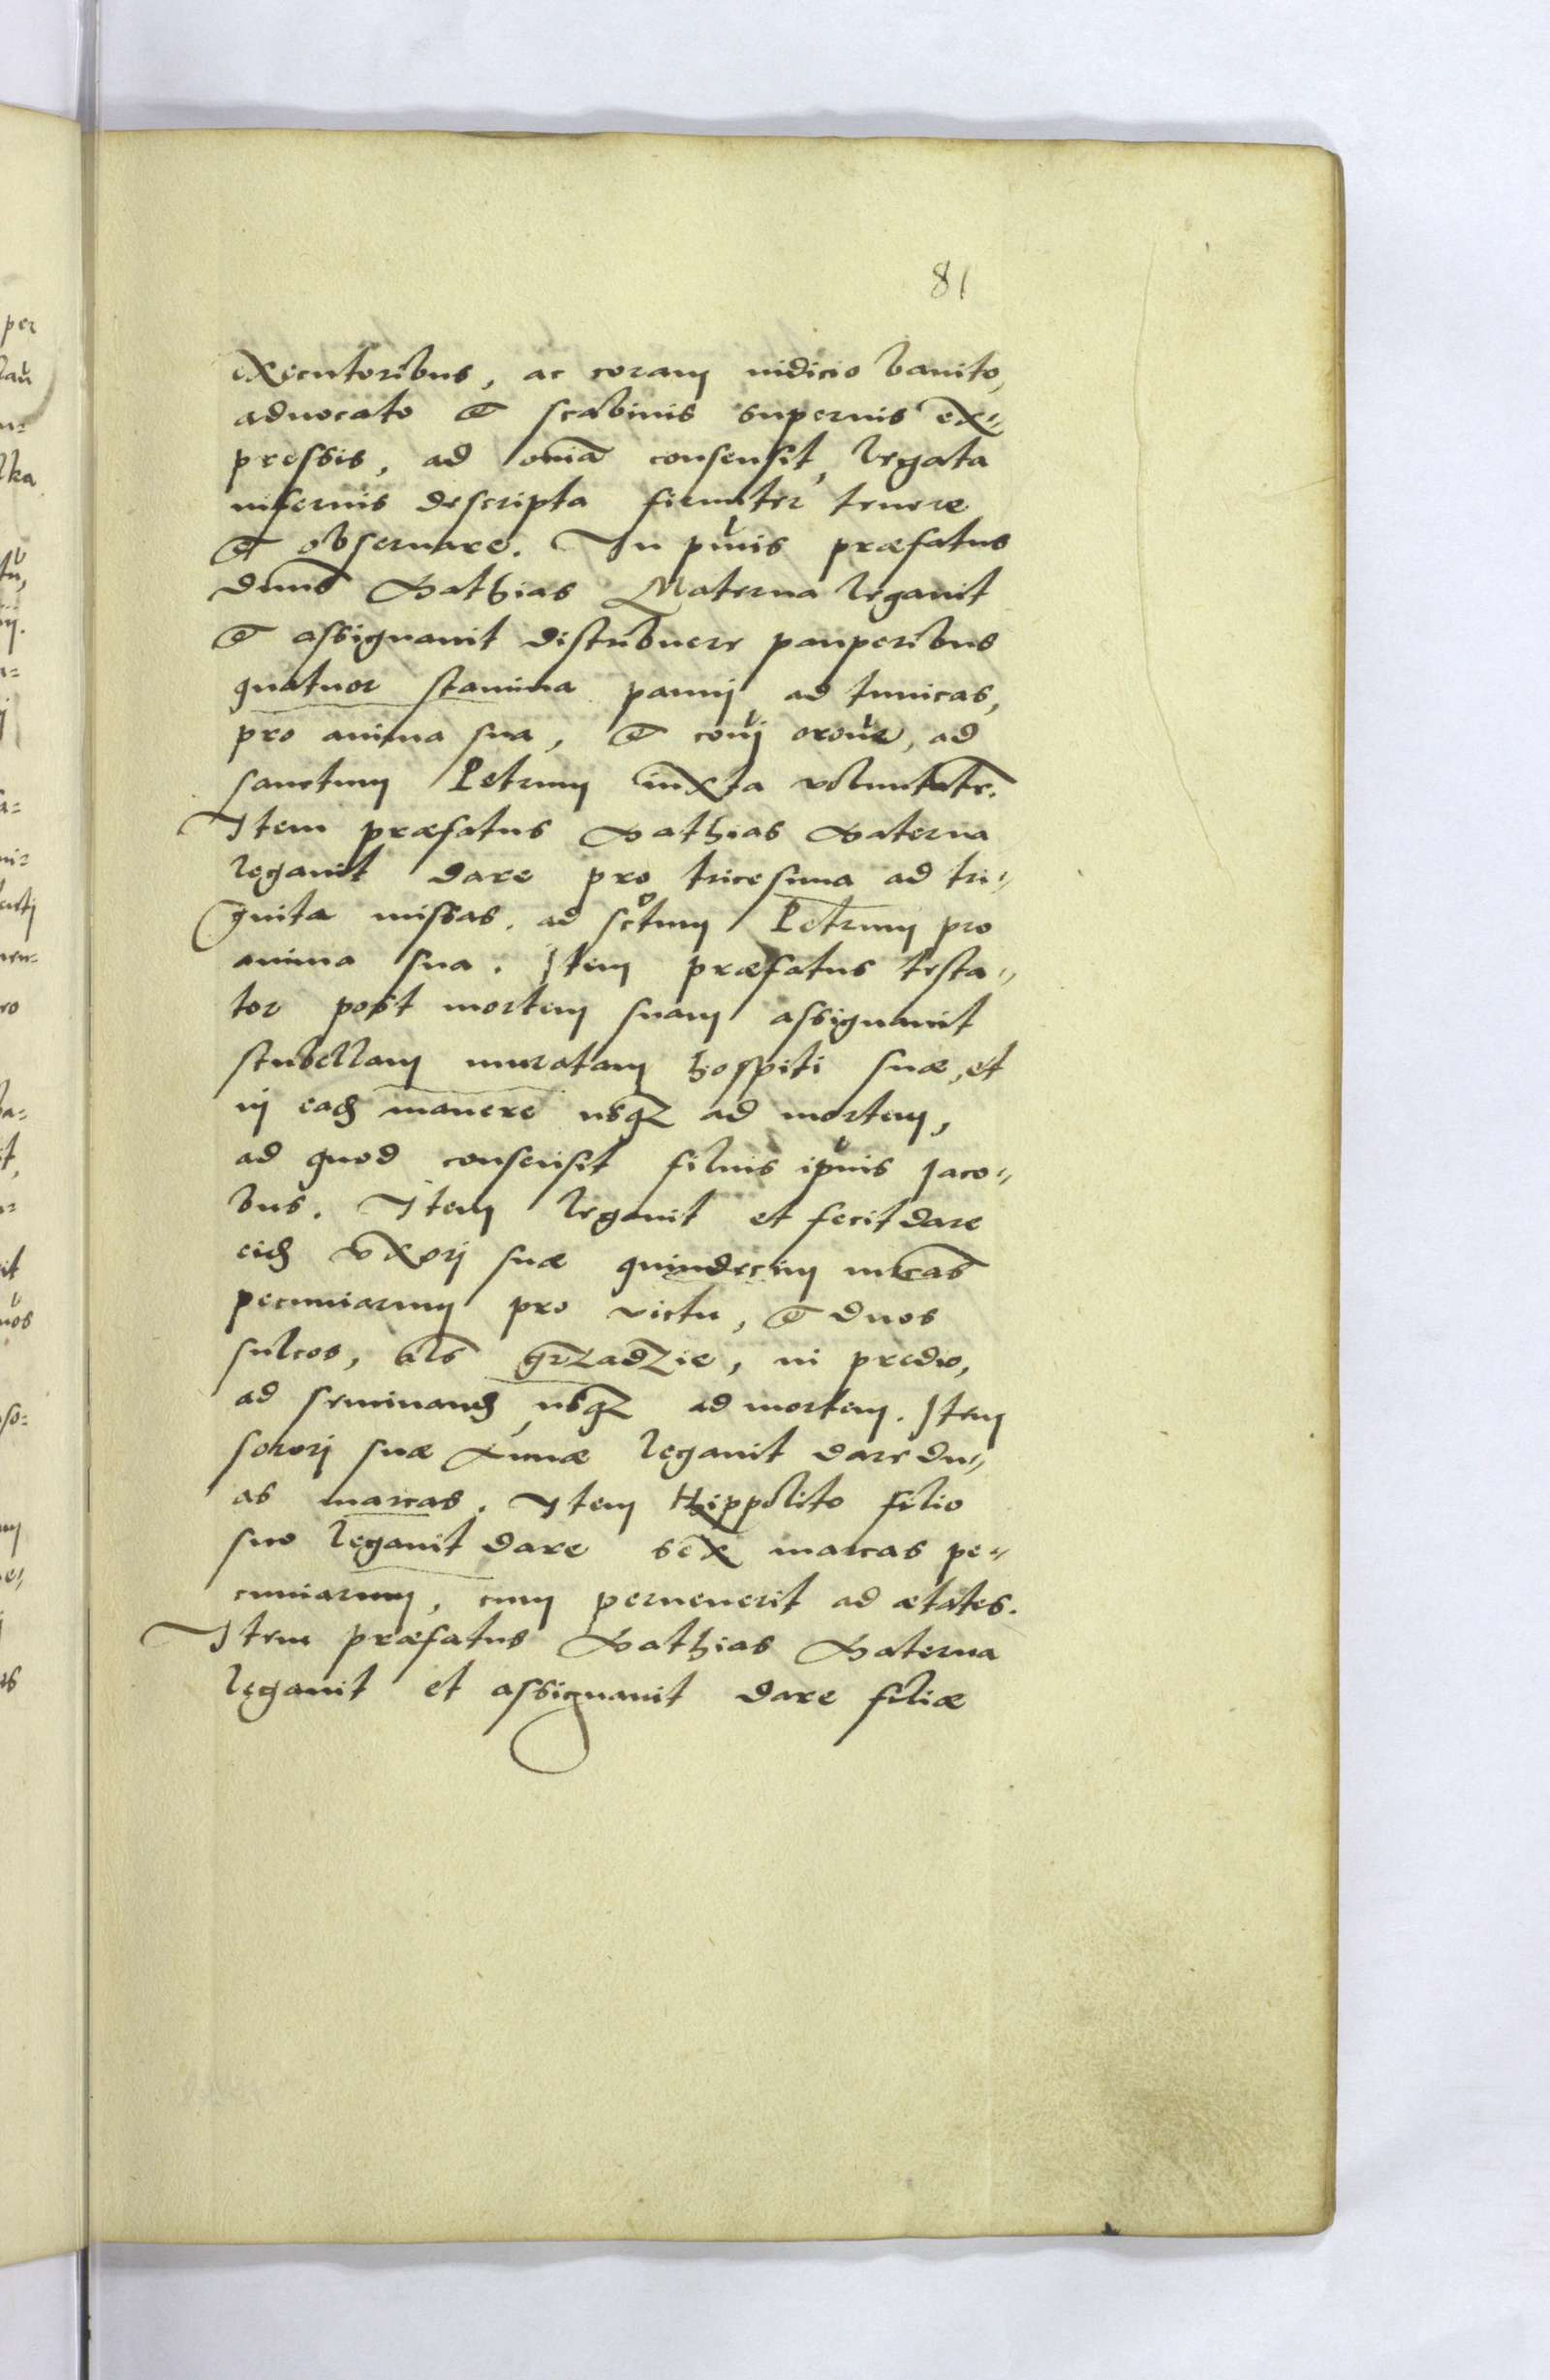 81
executoribus, ac coram iudicio banito,
aduocato et scabinis supernis ex=
pressis, ad omia consensit, legata
infernis descripta firmiter tenere
et obseruare. In pmis præfatus
dnus Mathias Materna legauit
et assignauit distribuere pauperibus
quatuor stamina pannj ad tunicas,
pro anima sua, et ad
sanctum Petrum iuxta voluntate.
Item præfatus Mathias Materna
legauit dare pro tricesima ad tri=
ginta missas. ad sctum Petrum pro
anima sua. Item præfatus testa=
tor post mortem suam assignauit
stubellam muratam hospiti suæ, et
in ead manere usq ad mortem,
ad quod consensit filius ipius Jaco=
bus. Item legauit et fecit dare
eid vxorj suæ quindecim mrcas
pecuniarum pro victu, et duos
sulcos, als grzadzie, in predio,
ad seminand, usq ad mortem. Item
sororj suæ Annæ legauit dare du=
as marcas. Item Hippolito filio
suo legauit dare sex marcas pe=
cuniarum, cum peruenerit ad ætates.
Item præfatus Mathias Materna
legauit et assignauit dare filiæ